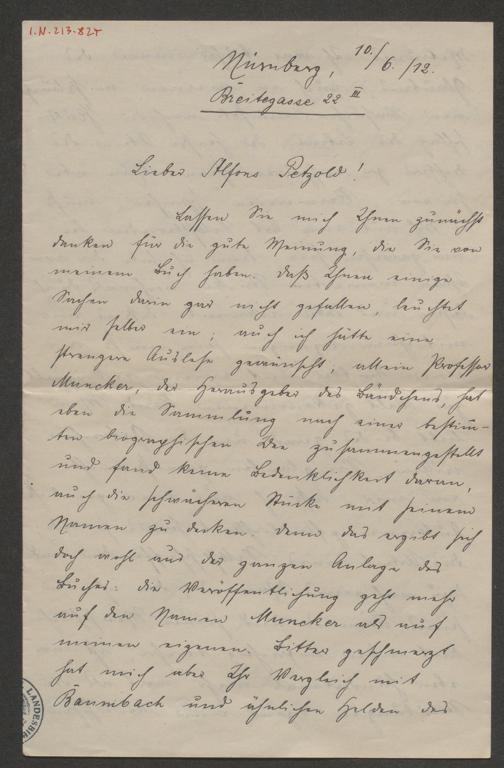 I.N. 213.825
Nürnberg, 10./6./12.
Breitegasse 22 III
Lieber Alfons Petzold!
Lassen Sie mich Ihnen zunächst
danken für die gute Meinung, die Sie von
meinem Buch haben. Daß Ihnen einige
Sachen darin gar nicht gefallen, leuchtet
mir selber ein; auch ich hätte eine
strengere Auslese gewünscht, allein Professor
Muncker, der Herausgeber des Bändchens, hat
eben die Sammlung nach einer bestimm-
ten biographischen Idee zusammengestellt
und fand keine Bedenklichkeit daran,
auch die schwächeren Stücke mit seinem
Namen zu decken. Denn das ergibt sich
doch wohl aus der ganzen Anlage des
Buches: die Veröffentlichung geht mehr
auf den Namen Muncker als auf
meinen eigenen. Bitter geschmerzt
hat mich aber Ihr Vergleich mit
Baumbach und ähnlichen Helden des
LANDESBI